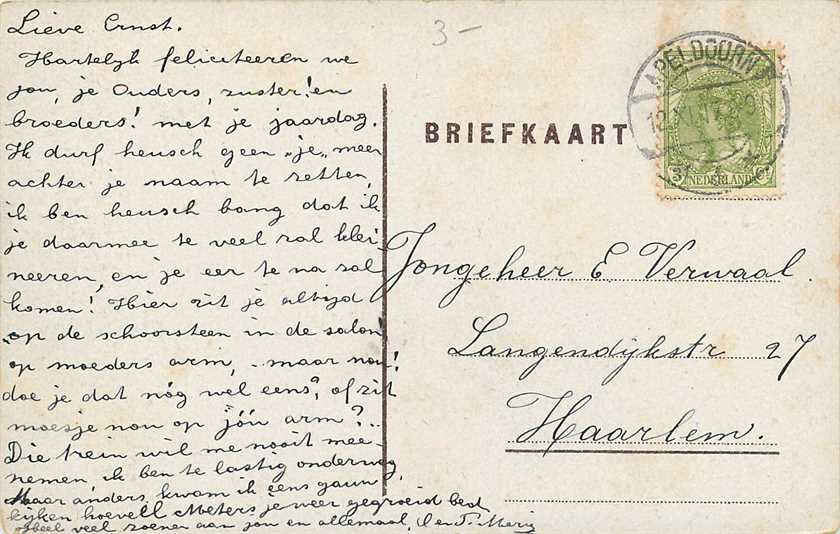 Lieve Ernst.
Hartelijk feliciteeren we
jou, je Ouders, zuster! en
broeders! met je jaardag.
Ik durf heusch geen „je" meer
achter je naam te zetten,
ik ben heusch bang dat ik
je daarmee te veel zal klei-
neeren, en je eer te na zal
komen! Hier zit je altijd
op de schoorsteen in de salon!
op moeders arm, - maar nou!
doe je dat nóg wel eens?, of zit
moesje nou op jóu arm?..
Die trein wil me nooit mee-
nemen, ik ben te lastig onderweg,
Maar anders, kwam ik eens gauw
kijken hoeveel Meters je weer gegroeid bed
Heel veel zoenen aan jou en allemaal,
3-
BRIEFKAART
APELDOORN
12.XI
NEDERLAND
Jongeheer E. Verwaal.
Langendijkstr 27
Haarlem.